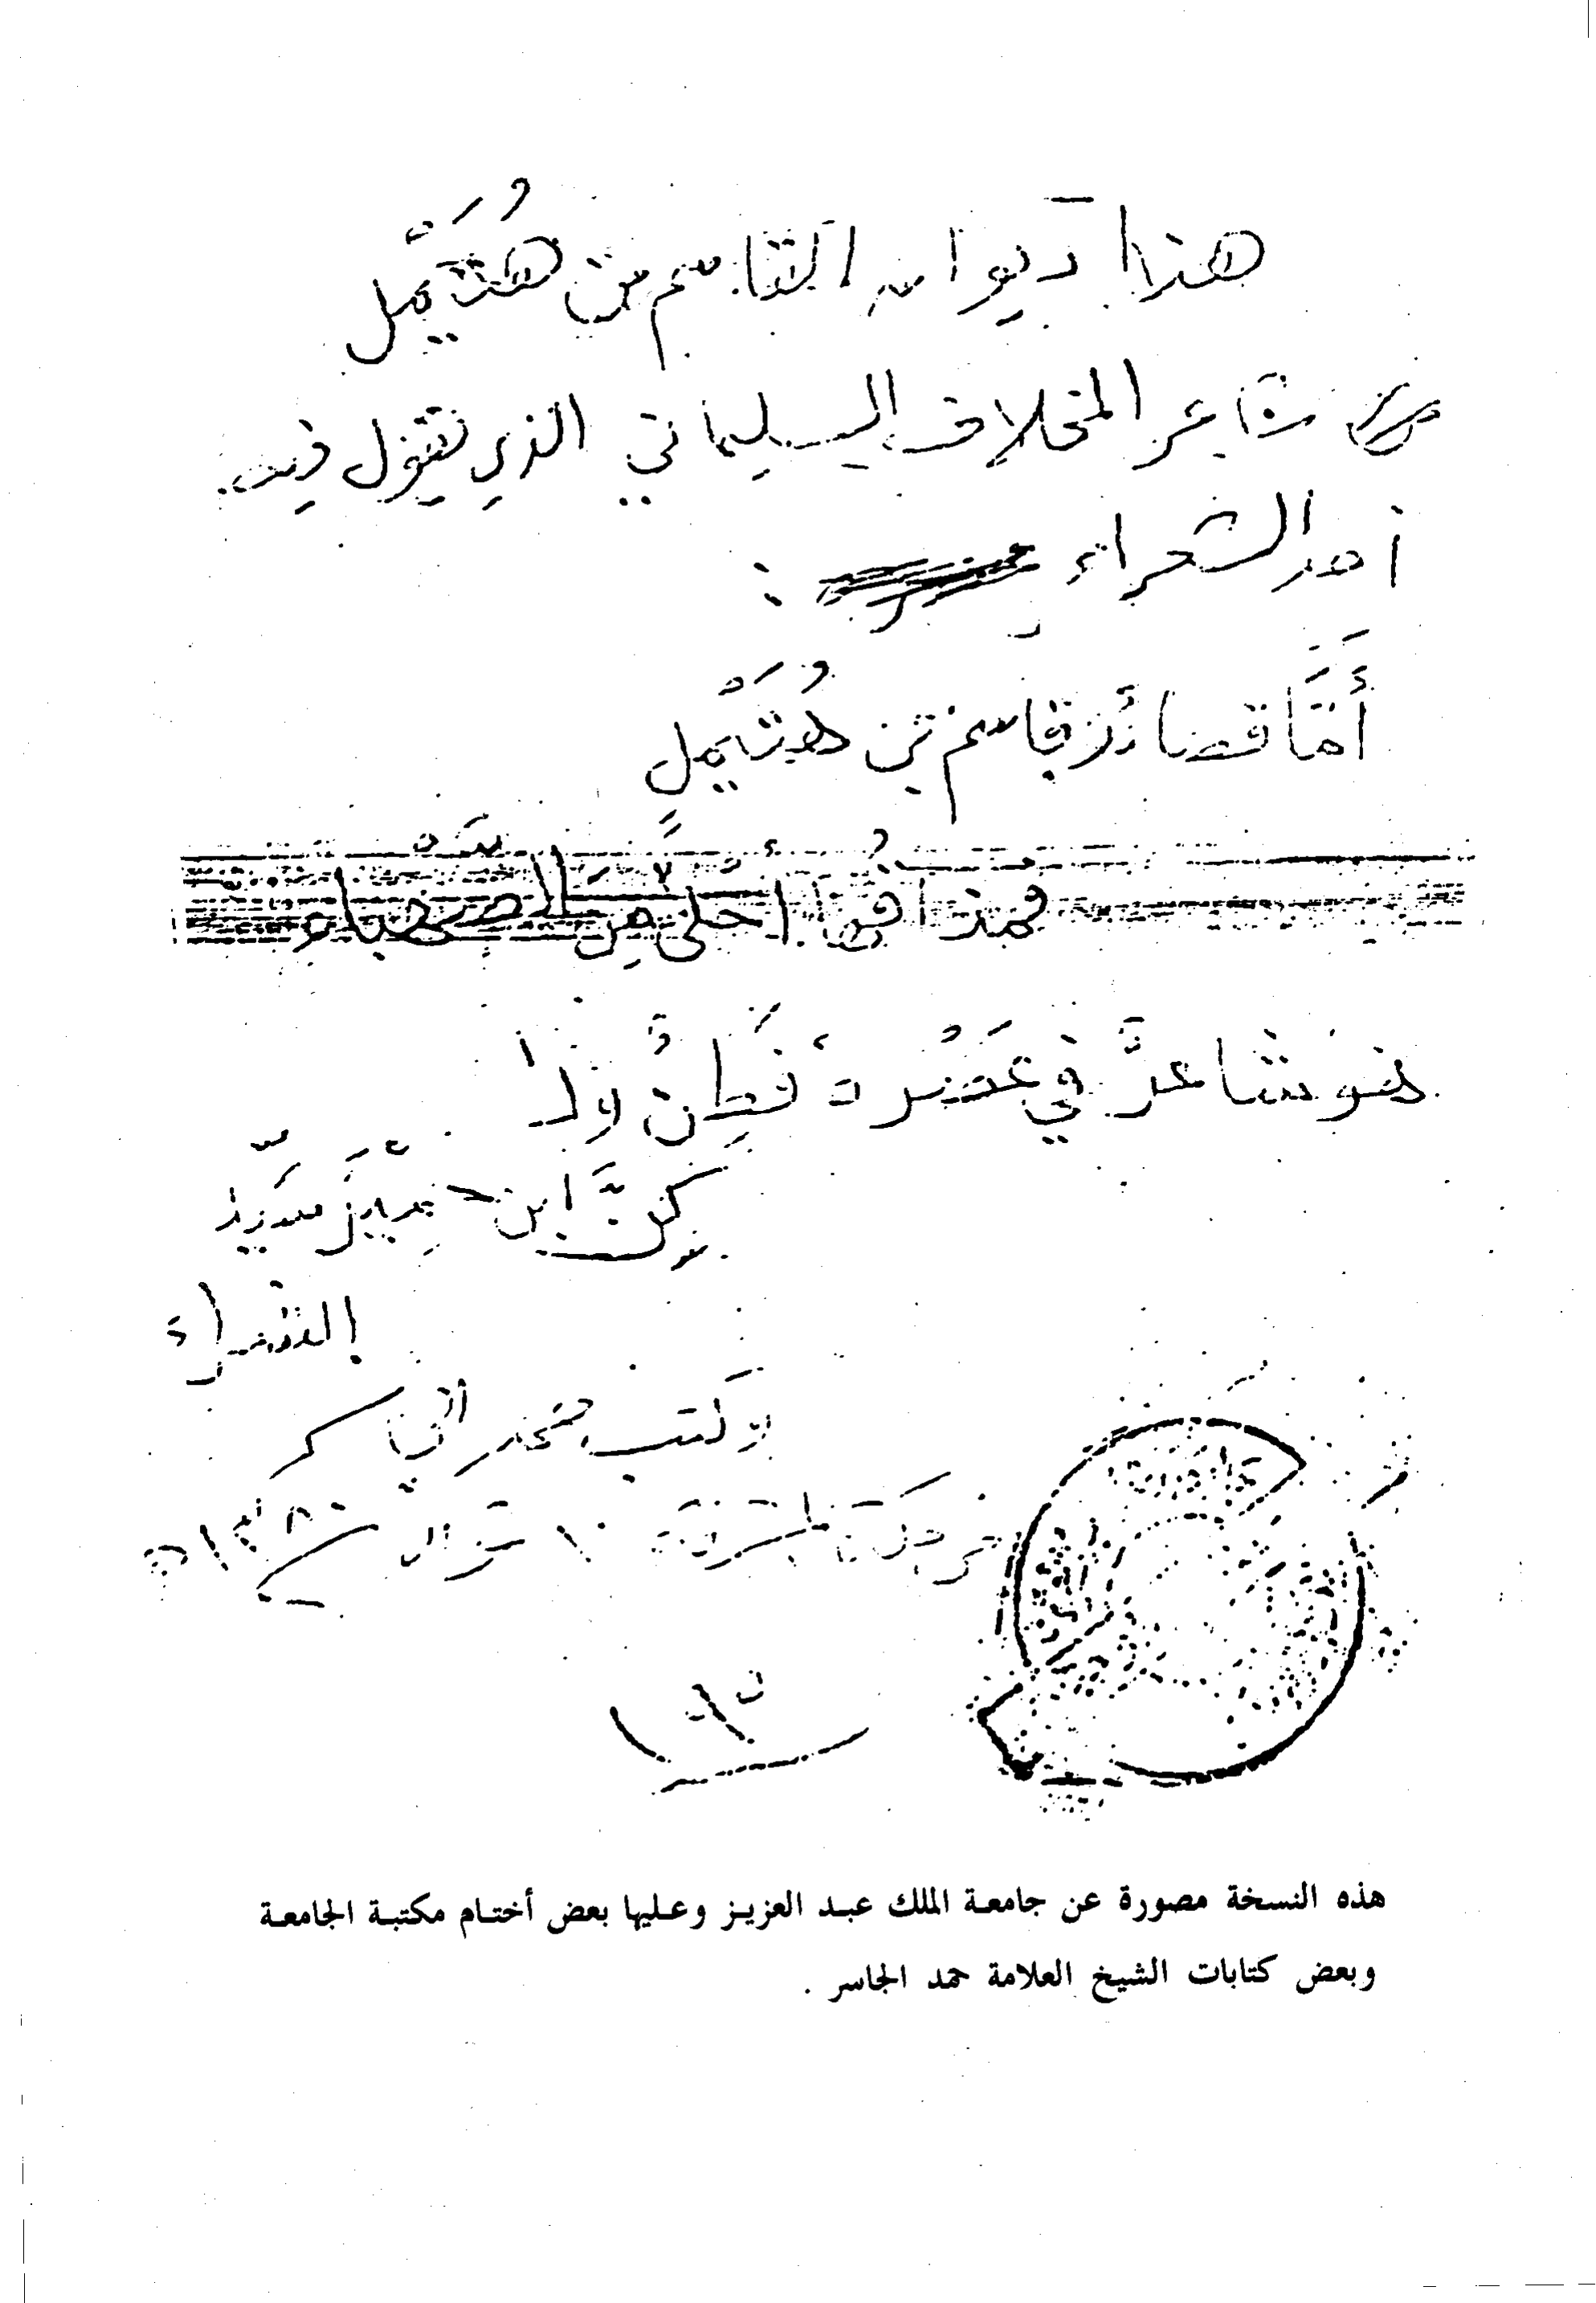 هذا ديوان القاسم بن هُتَيْمل
شاعر المخلاف السليماني الذي يقول فيه
أحد الشعراء :
أَمَّا قصائد قاسم بن هُتَيْملٍ
فمذاقها أحلى من الصهباء
هو شاعرٌ في عصره فَطِنٌ ولـ
كنَّ ابن حِمْيَرَ سَيِّد
الشعراء
وكتب حمد الجاسر
١٠ شوال ١٣٨٠ هـ
هذه النسخة مصورة عن جامعة الملك عبد العزيز وعليها بعض أختام مكتبة الجامعة
وبعض كتابات الشيخ العلامة حمد الجاسر .